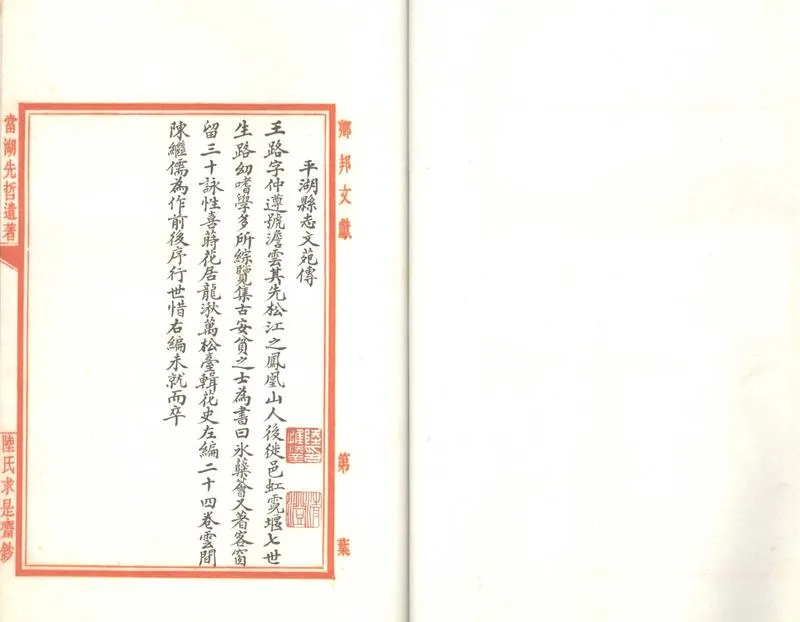 鄉邦文獻
第 葉
平湖縣志文苑傳
王路字仲遵號澹雲其先松江之鳳凰山人後徙邑虹霓堰七世
生路幼嗜學多所綜覽集古安貧之士為書曰氷蘖薈又著客窗
留三十詠性喜蒔花居龍湫萬松臺輯花史左編二十四卷雲間
陳繼儒為作前後序行世惜右編未就而卒
當湖先哲遺著
陸氏求是齋鈔